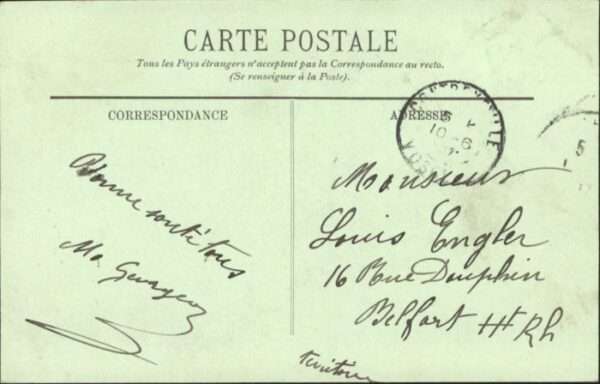 CARTE POSTALE
Tous les Pays étrangers n'acceptent pas la Correspondance au recto.
(Se renseigner à la Poste).
CORRESPONDANCE
ADRESSE
Bonne santé tous
Monsieur
Louis Engler
16 Rue Dauphin
Belfort Ht Rh
5